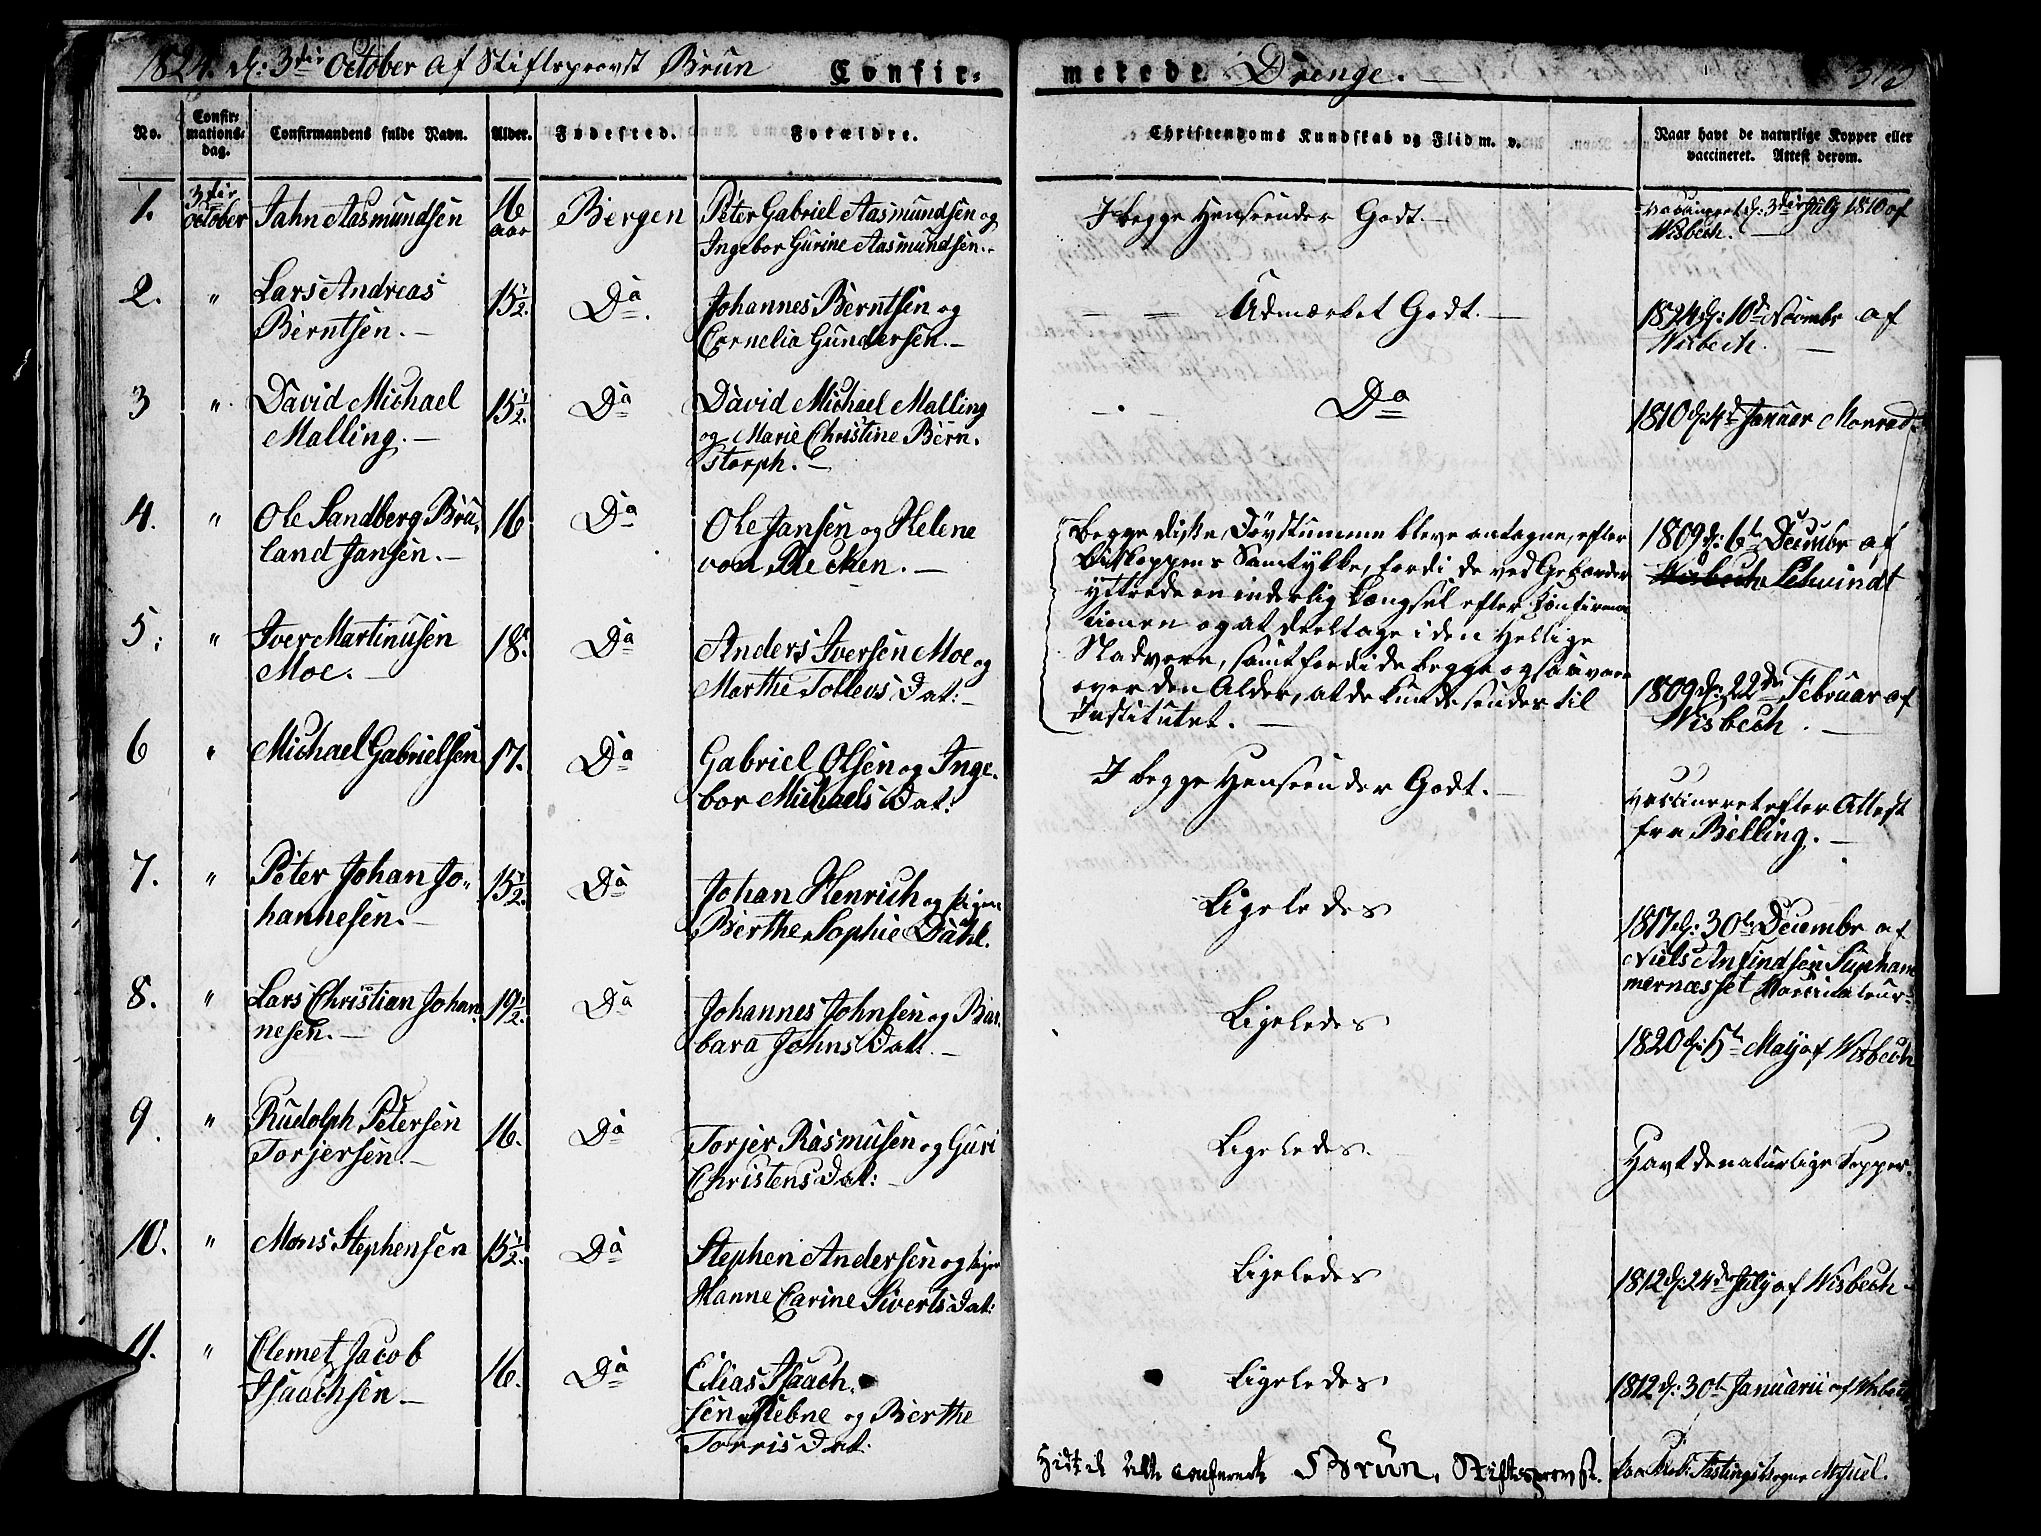 1824. d: 3die October af Stiftsprovst Brun Confir- merede Drenge.
No. Confirmationsdag. Confirmandens fulde Navn. Alder. Fødested. Forældre. Christendoms Kundskab og Flid m. v. Naar havt de naturlige Kopper eller vaccineret. Attest derom.
1. 3die October Jahn Aasmundsen 16 aar Bergen Peter Gabriel Aasmundsen og
Ingebor Gurine Aasmundsen.
I begge Henseender Godt.
vaccineret d: 3die July 1810 af
Wisbech.
2. " Lars Andreas
Berntsen. 15½. Da. Johannes Berntsen og
Cornelia Gundersen.
— — Udmærket Godt.
1824 d: 10de Novembr af
Wisbech.
3 " David Michael
Malling. 15½. Da David Michael Malling
og Marie Christine Bern-
storph.
— — Da
1810 d: 4de Januar Monrad
4. " Ole Sandberg Bru-
land Jansen. 16 Da Ole Jansen og Helene
von der Recken.
begge disse Døvstumme bleve antagne, efter
Biskoppens Samtykke, fordi de ved Gebærder
yttrede en inderlig Længsel efter Confirma
tionen og at deeltage i den Hellige
Nadvere, samt fordi de begge ogsaa vare
over den Alder, at de kunde sendes til
Institutet.
1809 d: 6te Decembr af
Wisbech Schwindt
5. " Iver Martinusen
Moe. 18. Da Anders Iversen Moe og
Marthe Tollevs Dat:
1809 d: 22de Februar af
Wisbech.
6 " Michael Gabrielsen 17. Da Gabriel Olsen og Inge-
bor Michaels Dat:
I begge Henseender Godt.
vaccineret efter Attest
fra Billing.
7. " Peter Johan Jo-
hannesen. 15½. Da Johan Henrich og Pigen
Berthe Sophie Dahl.
Ligeledes
1817 d: 30te Decembr af
Niels Anfindsen
mernæsset Vaccinateur
8. " Lars Christian Johan-
nesen. 19½. Da Johannes Johnsen og Bar-
bara Johns Datt.
Ligeledes
1820 d: 5te May af Wisbech
9. " Rudolph Petersen
Torjersen. 16. Da Torjer Rasmusen og Guri
Christens Dat:
Ligeledes.
Havt de naturlige Kopper.
10. " Mons Stephensen 15½. Da Stephen Andersen og Pigen
Hanne Carine Siverts Dat:
Ligeledes
1812 d: 24de July af Wisbech
11. " Clemet Jacob
Isaachsen. 16. Da Elias Isaach-
sen Rebne og Berthe
Torris Dat:
Ligeledes
1812 d: 30te Januarii af Wisbech
Brun, Stiftsprovst.